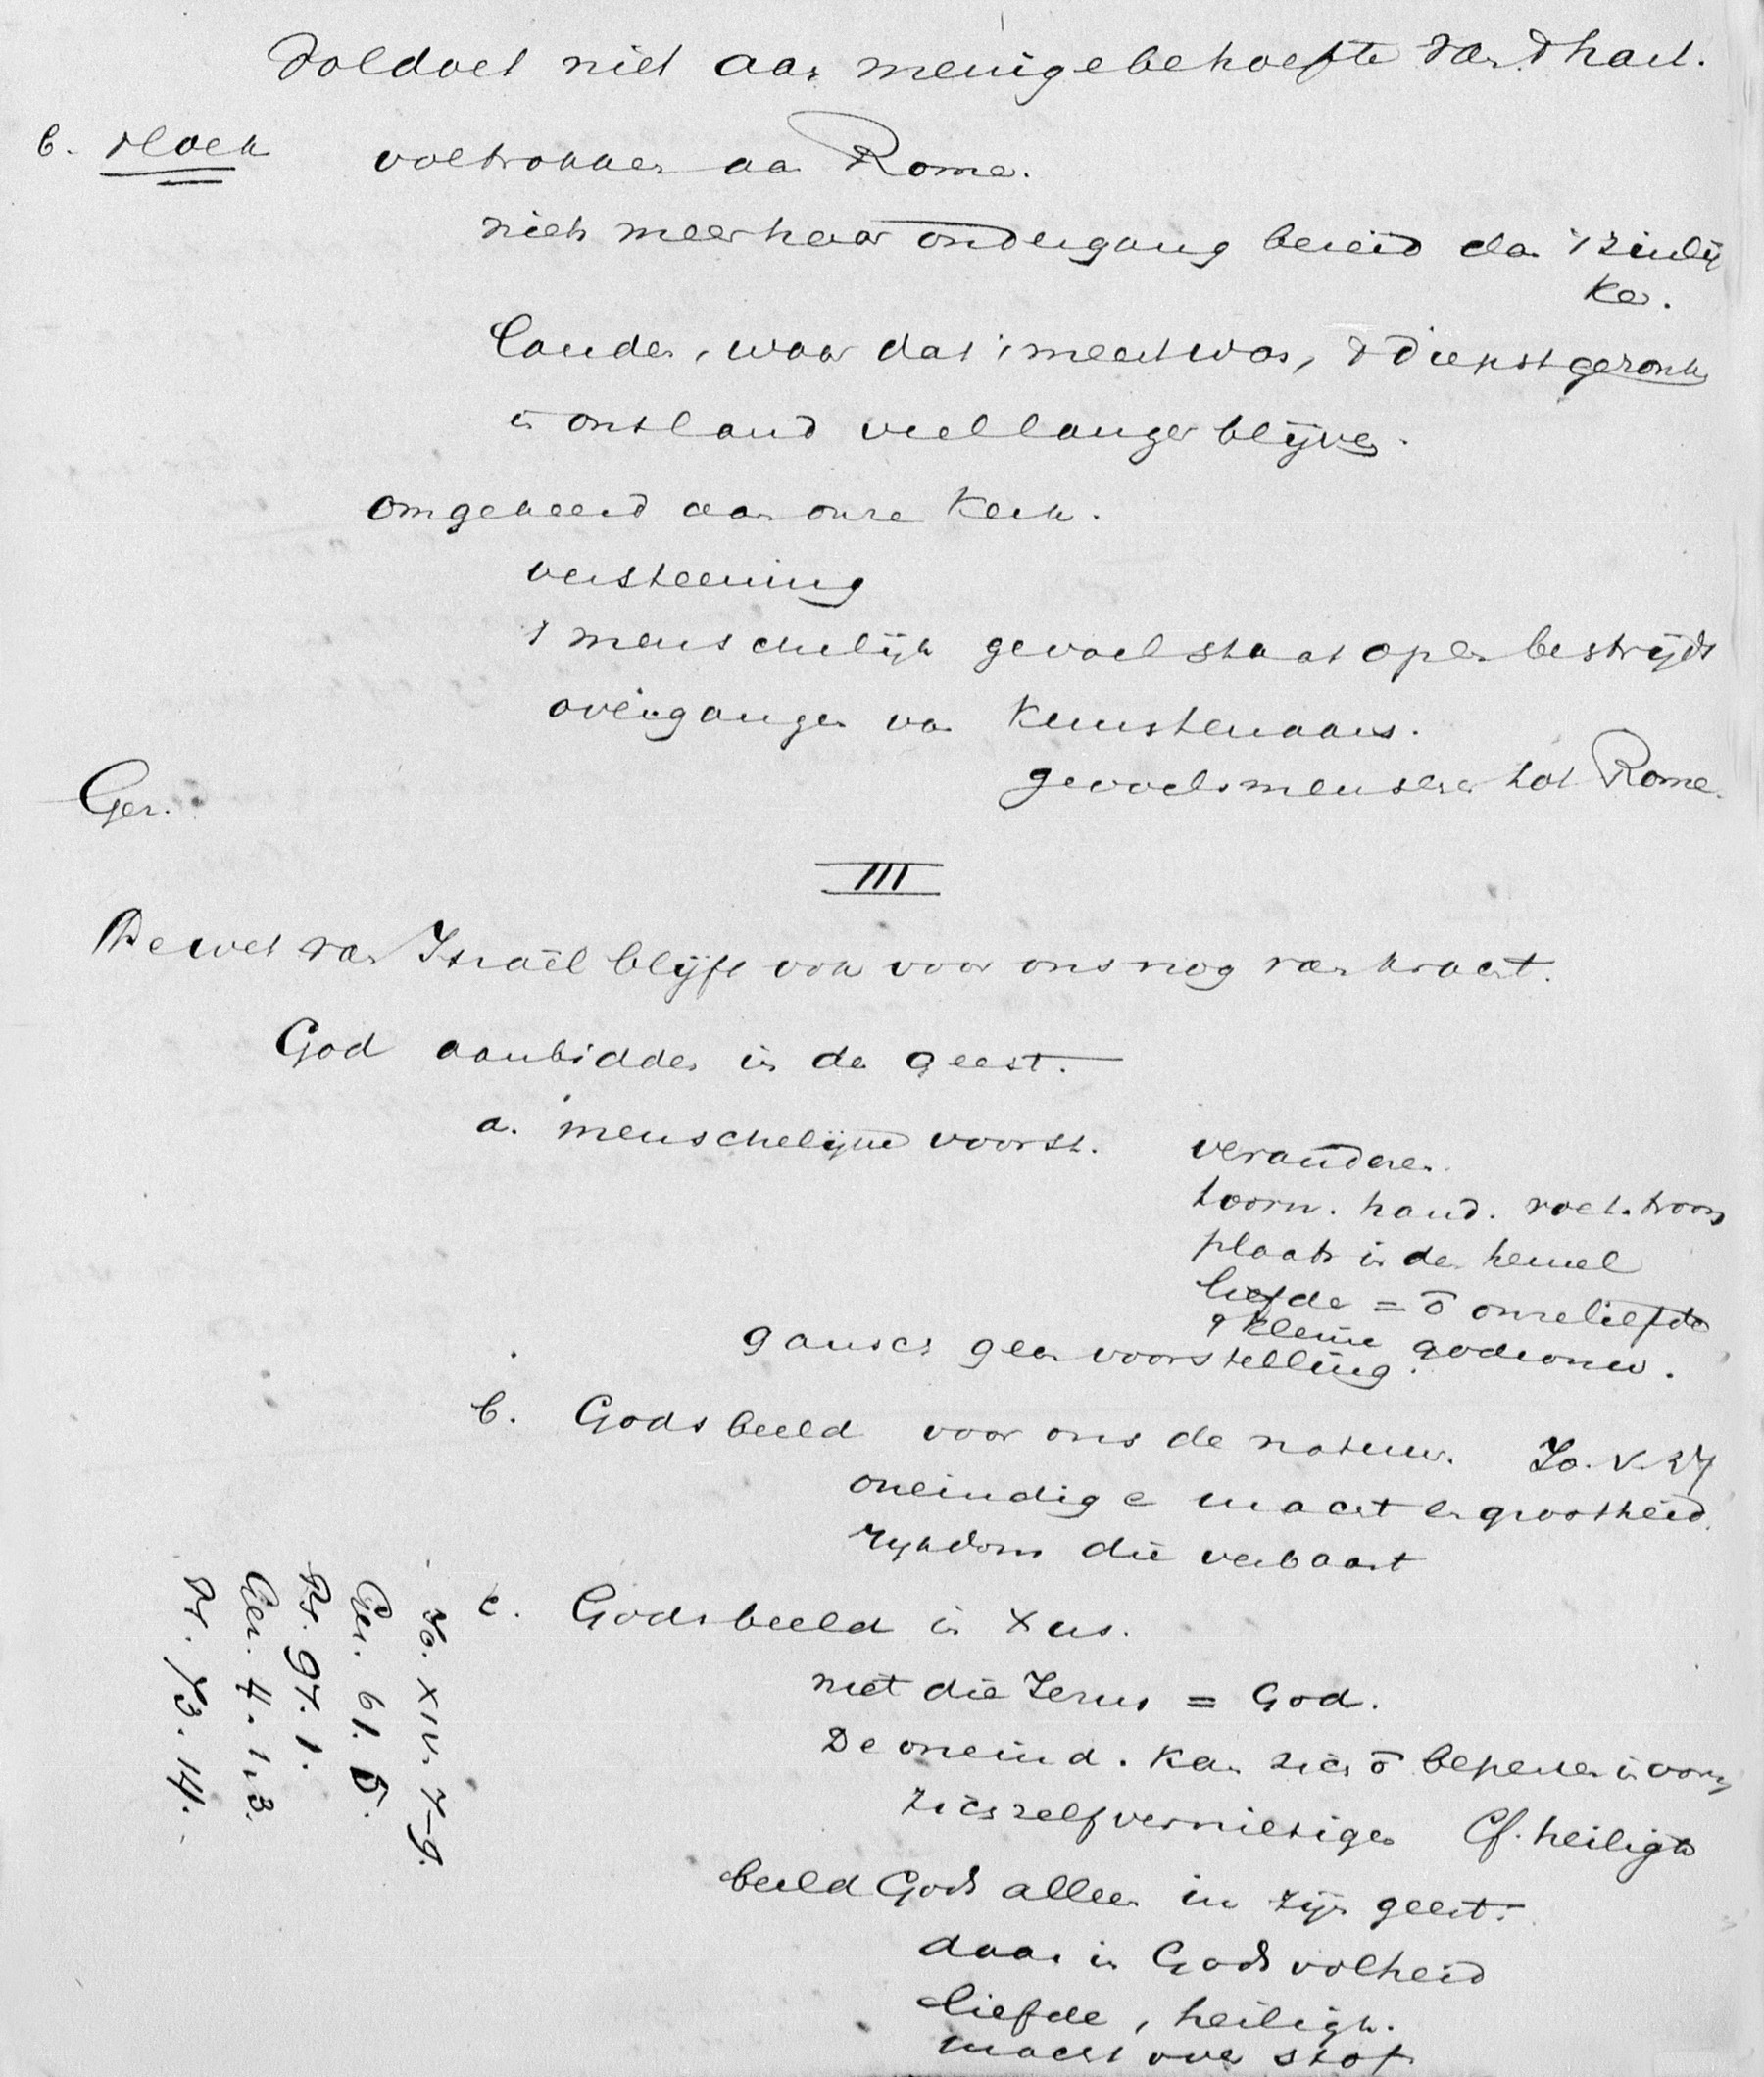 Voldoet niet aan menige behoefte van 't hart.
b. vloek voltrokken aan Rome.
niets meer haar ondergang bereid dan 't zinlij
ke.
landen, waar dat 't meest was, 't diepst gezonken
in ons land veel langer blijven.
omgekeerd aan onze Kerk.
versteening
't menschelijk gevoel staat op en bestrijdt
overgangen van Kunstenaars.
gevoelsmenschen tot Rome.
Gez.
III
De wet van Israël blijft ook voor ons nog van kracht.
God aanbidden in den geest.
a. menschelijke voorst. veranderen.
toorn. hand. voet. troon
plaats in den hemel
liefde = ō onze liefde
kleine godvrouw.
gansch geen voorstelling.
b. Gods beeld voor ons de natuur. Jo. V. 27
oneindige macht en grootheid.
rijkdom die verbaast
c. Gods beeld in Xus.
niet die Jezus = God.
De oneind. kan zich ō beperken in vorm
zichzelf vernietigen Cf. heiligh
beeld Gods alleen in zijn geest.
daar in Gods volheid
liefde, heiligh.
macht over stof
Jo. XIV. 7-9.
Gez. 61. 5.
Ps. 97. 1.
Gez. 4. 1. 3.
Ps. 73. 14.